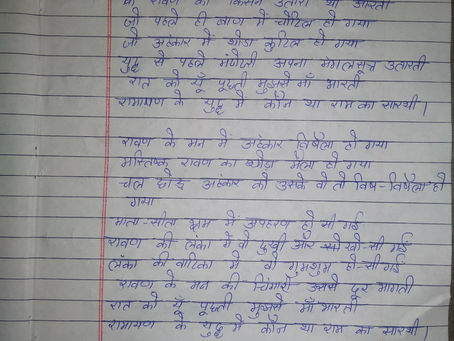 के रावण की किसने उतारी थी आरती
जो पहले ही बाण में चोटिल हो गया
जो अहंकार में थोडा कुटिल हो गया
युद्ध से पहले मंदोदरी अपना मंगलसूत्र उतारती
रात को यूँ पूछती मुझसे माँ भारती
रामायण के युद्ध में कौन था राम का सारथी।
रावण के मन में अहंकार विषैला हो गया
मस्तिष्क रावण का थोडा मैला हो गया
चल छोड अहंकार को उसके वो तो विष-विषैला हो
गया
माता-सीता भ्रम में अपहरण हो सी गई
रावण की लंका में वो दुखी और खो-सी गई
लंका की वाटिका में वो गुमशुम हो-सी गई
रावण के मन की चिंगारी उससे दूर भागती
रात को यूँ पूछती मुझसे माँ भारती
रामायण के युद्ध में कौन था राम का सारथी।